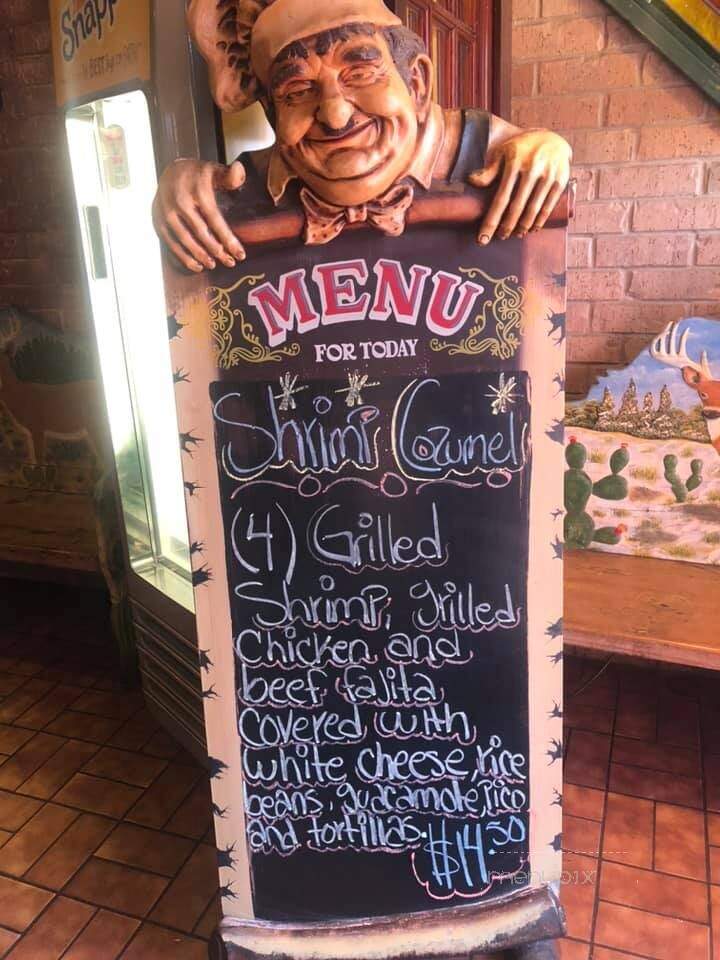 Snapp
MENU
FOR TODAY
Shrimp Cozumel
(4) Grilled
Shrimp, grilled
Chicken and
beef fajita
Covered with
white cheese, rice
beans, guacamole, Pico
and tortillas. $14.50
menupix